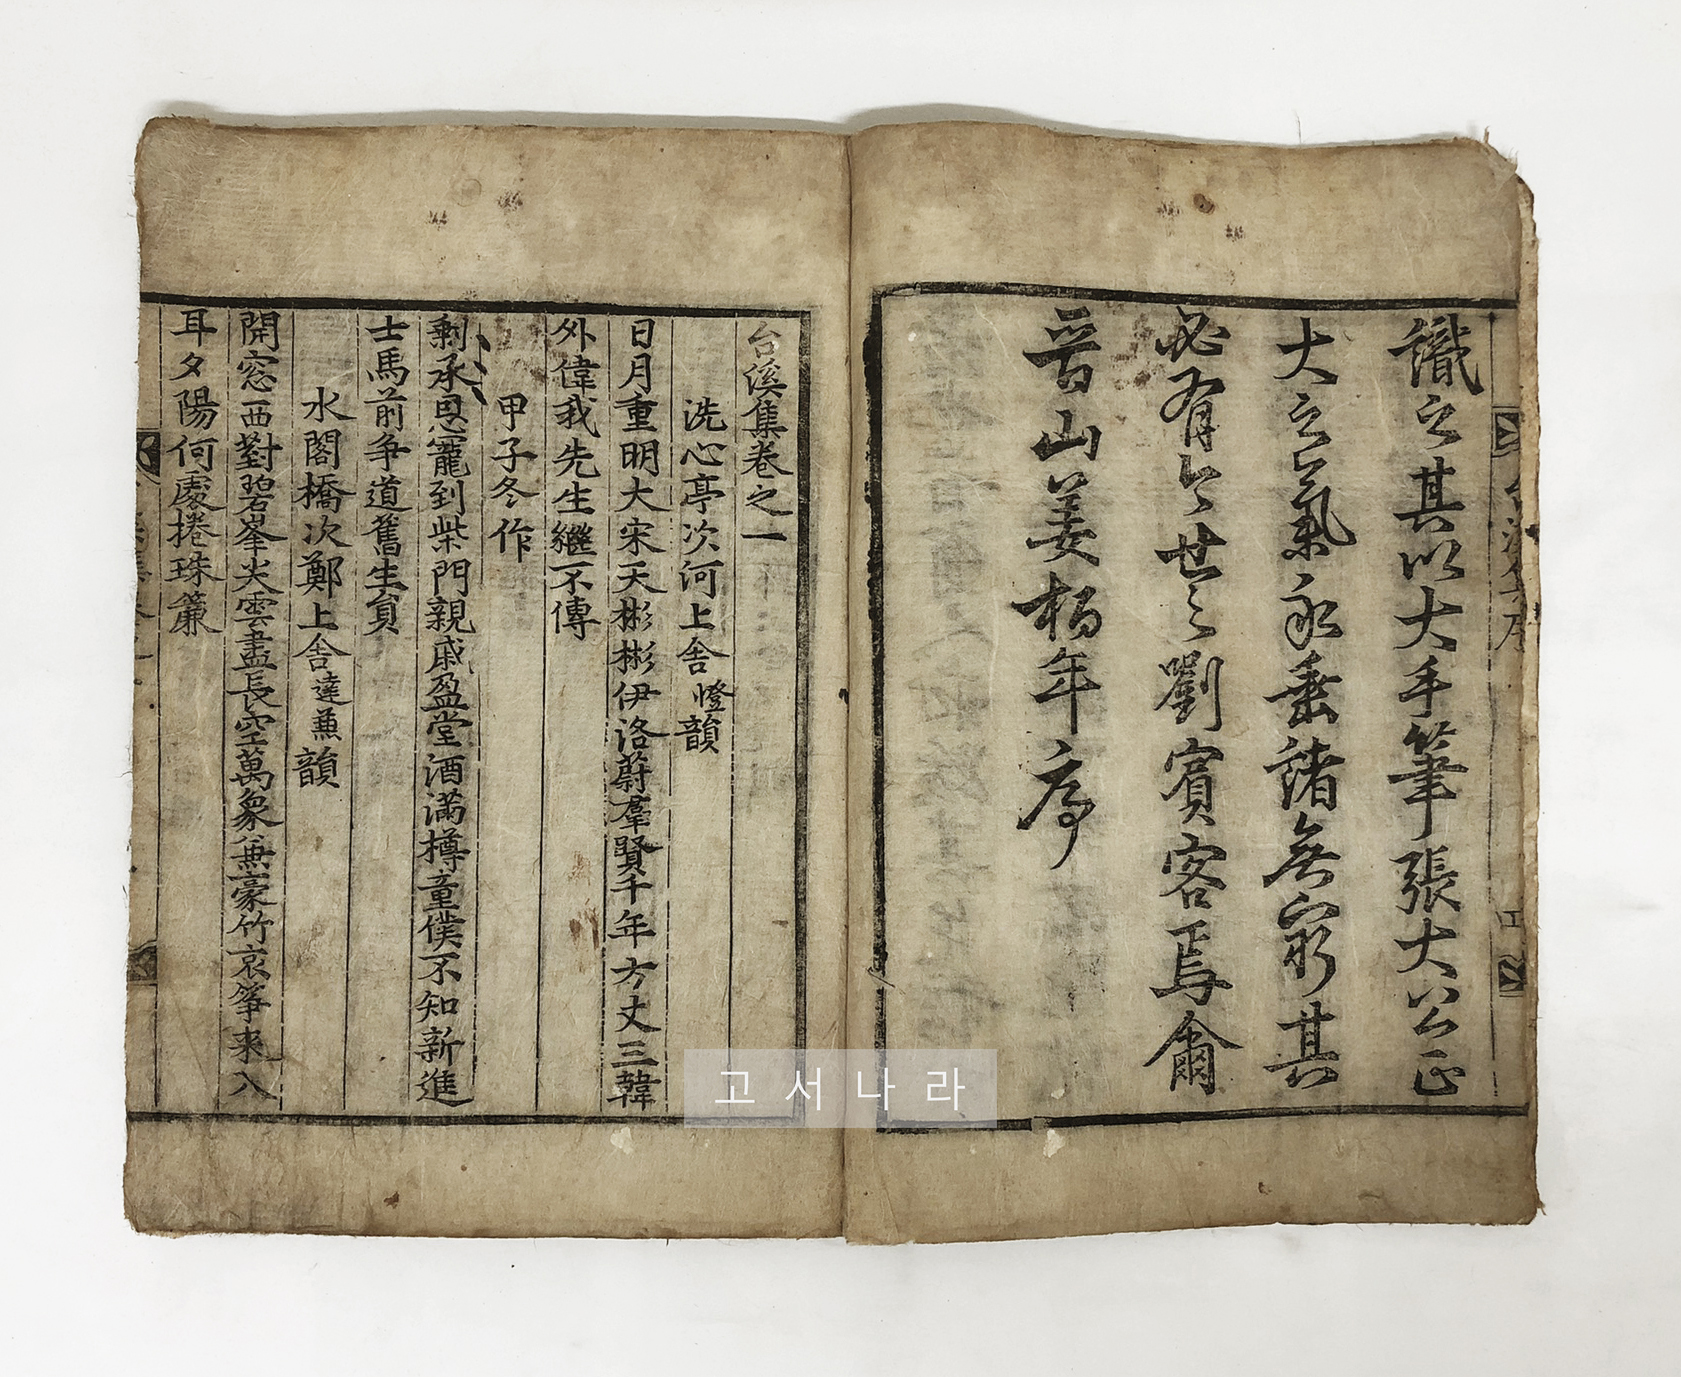 識之其以大手筆張大公正
大之氣永垂諸無窮其
必有今世之劉賓客焉爾
晉山姜栢年序
台溪集序
台溪集卷之一
洗心亭次河上舍憕韻
日月重明大宋天彬彬伊洛蔚羣賢千年方丈三韓
外偉我先生繼不傳
甲子冬作
剩承恩寵到柴門親戚盈堂酒滿樽童僕不知新進
士馬前争道舊生員
水閣橋次鄭上舍達兼韻
開窓西對碧峯尖雲盡長空萬象兼豪竹哀箏来入
耳夕陽何處捲珠簾
고서나라